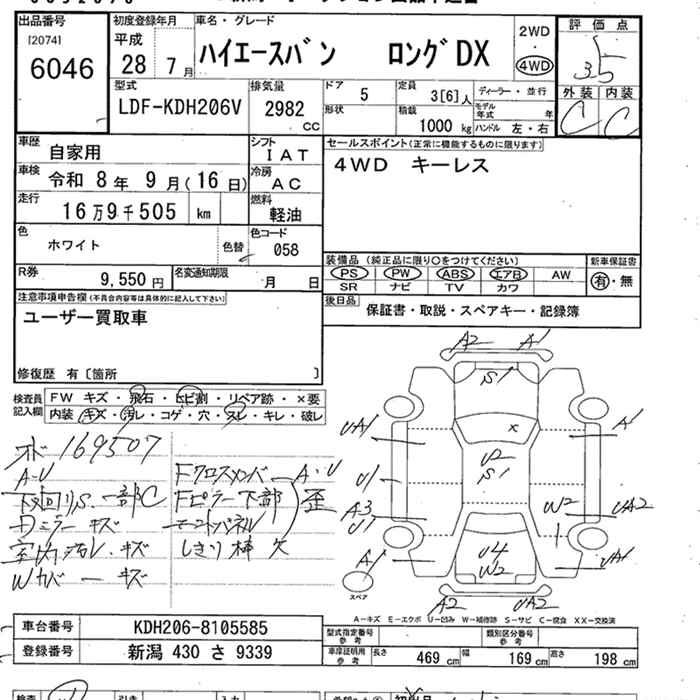 出品番号
[2074]
6046
初度登録年月
平成
28年 7月
車名・グレード
ハイエースバン ロングDX
2WD
・
4WD
評価点
3.5
外装 内装
C C
型式
LDF-KDH206V
排気量
2982
CC
ドア
5
形状
定員
3[6]人
積載
1000 kg
ディーラー・並行
モデル年式 年
ハンドル 左・右
車歴
自家用
シフト
IAT
車検
令和 8年 9月(16日)
冷房
AC
走行
16万9千505 km
燃料
軽油
色
ホワイト
色替
色コード
058
R券
9,550円
名変通知期限
月 日
セールスポイント(正常に機能するものに限ります)
4WD キーレス
装備品(純正品に限り○をつけてください)
新車保証書
PS PW ABS エアB AW
SR ナビ TV カワ
有・無
後日品
保証書・取説・スペアキー・記録簿
注意事項申告欄(不具合内容等は具体的に記入して下さい)
ユーザー買取車
修復歴 有[箇所 ]
検査員記入欄
FW キズ・飛石・ヒビ割・リペア跡・×要
内装・キズ・汚レ・コゲ・穴・スレ・キレ・破レ
169507
A・U
下廻りS.一部C
Dミラーキズ
室内汚レ.キズ
Wカバーキズ
Fクロスメンバー A・U
Fピラー下部
歪
しきり棒欠
A2 A1
S1
UA1
A1
×
U2
S1
U1
A3
U1
W2
UA2
A1
U4
W2
UA1
スペア
A2
UA2
A-キズ E-エクボ U-凹み W-補修跡 S-サビ C-腐食 XX-交換済
車台番号
KDH206-8105585
登録番号
新潟 430 さ 9339
型式指定番号
参考
類別区分番号
参考
車庫証明用
参考
長さ 469cm
幅 169cm
高さ 198cm